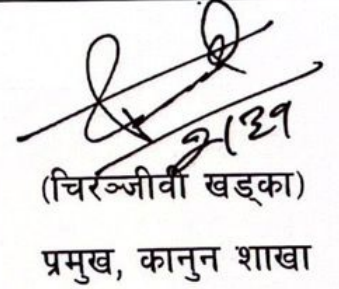 २/३१
(चिरञ्जीवी खड्का)
प्रमुख, कानुन शाखा